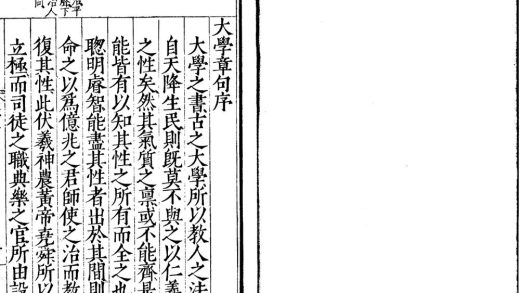 大學章句序
大學之書古之大學所以教人之法
自天降生民則旣莫不與之以仁義
之性矣然其氣質之禀或不能齊是
能皆有以知其性之所有而全之也
聰明睿智能盡其性者出於其間則
命之以爲億兆之君師使之治而教
復其性此伏羲神農黃帝堯舜所以
立極而司徒之職典樂之官所由設